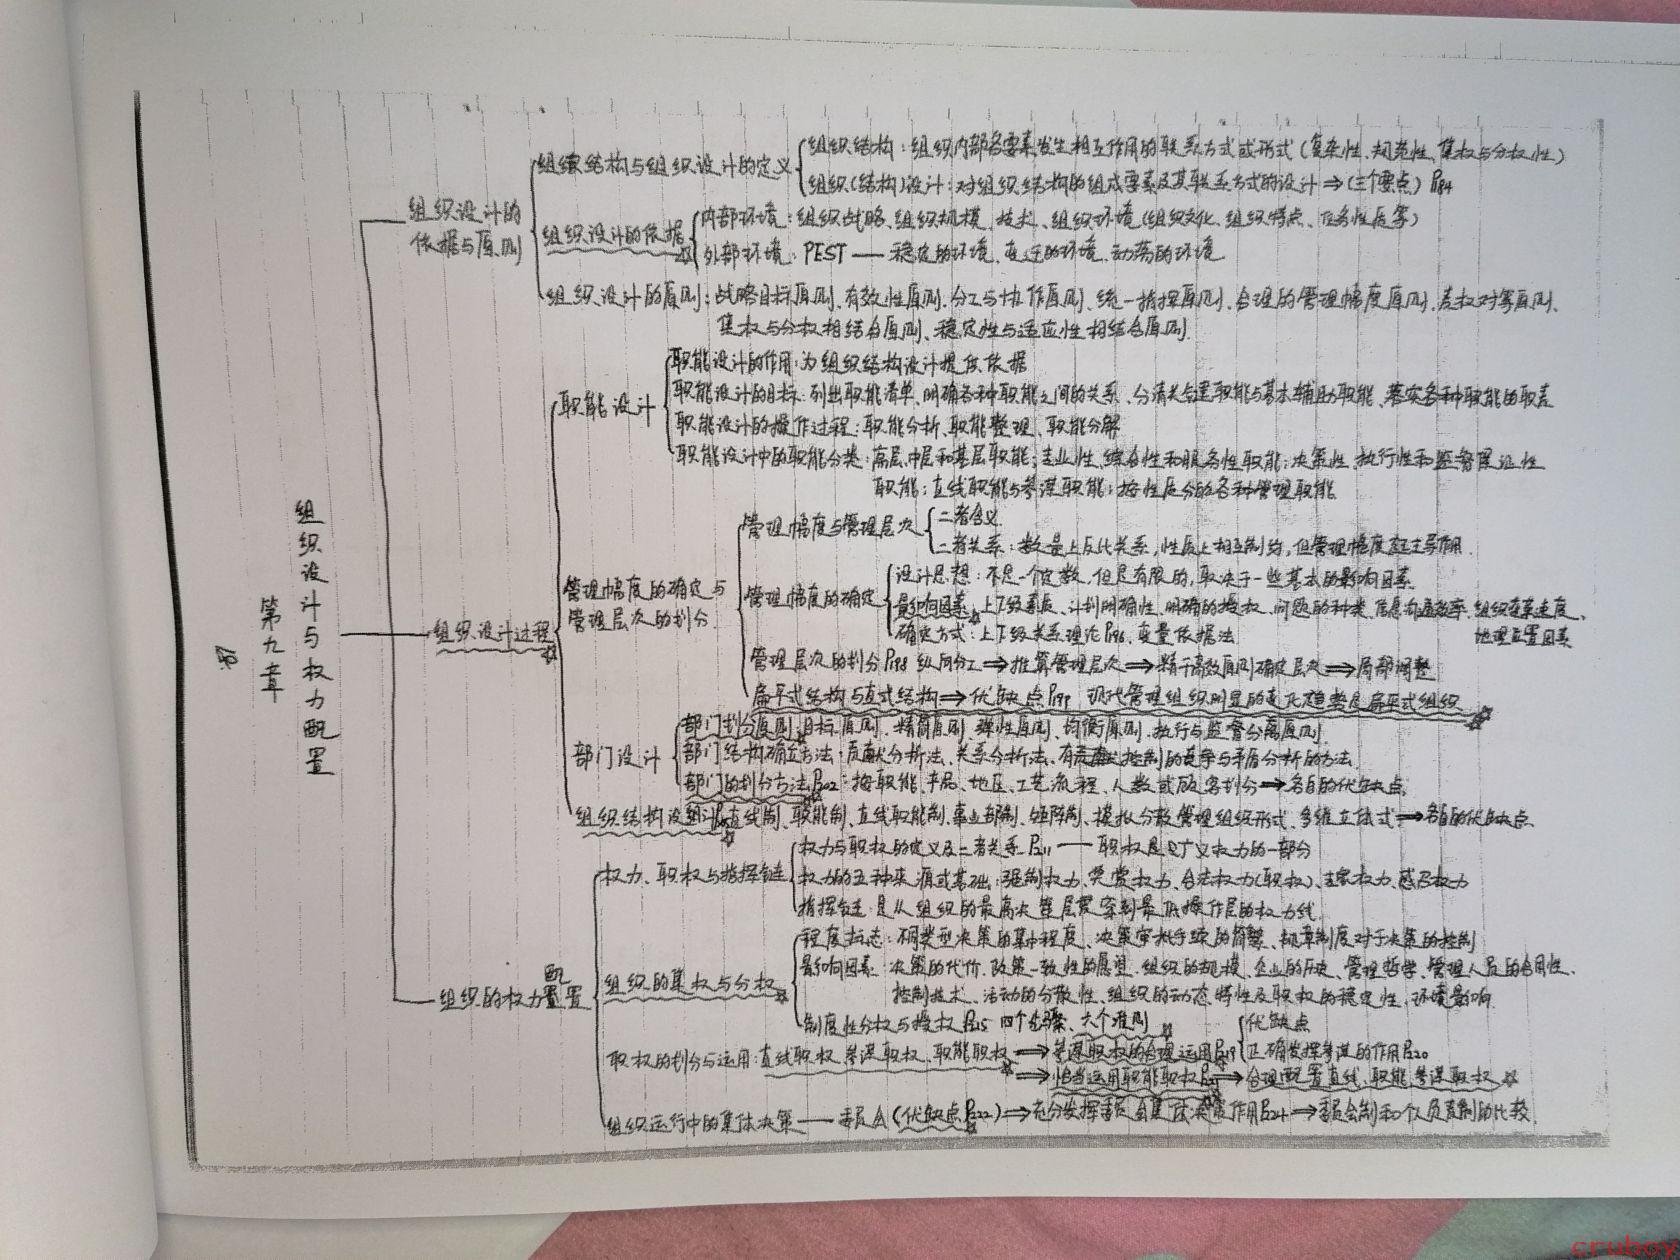 第九章
组织设计与权力配置
组织设计的
依据与原则
组织结构与组织设计的定义
组织结构：组织内部各要素发生相互作用的联系方式或形式（复杂性、规范性、集权与分权性）
组织（结构）设计：对组织结构的组成要素及其联系方式的设计⇒（三个要点）P184
组织设计的依据
内部环境：组织战略、组织规模、技术、组织环境（组织文化、组织特点、任务性质等）
外部环境：PEST——稳定的环境、变迁的环境、动荡的环境
组织设计的原则：战略目标原则、有效性原则、分工与协作原则、统一指挥原则、合理的管理幅度原则、责权对等原则、
集权与分权相结合原则、稳定性与适应性相结合原则.
组织设计过程
职能设计
职能设计的作用：为组织结构设计提供依据
职能设计的目标：列出职能清单、明确各种职能之间的关系、分清关键职能与基本辅助职能、落实各种职能的职责
职能设计的操作过程：职能分析、职能整理、职能分解
职能设计中的职能分类：高层、中层和基层职能；专业性、综合性和服务性职能；决策性、执行性和监督保证性
职能；直线职能与参谋职能；按性质分的各种管理职能
管理幅度的确定与
管理层次的划分
管理幅度与管理层次
二者含义
二者关系：数量上反比关系，性质上相互制约，但管理幅度起主导作用.
管理幅度的确定
设计思想：不是一个定数，但是有限的，取决于一些基本的影响因素.
影响因素：上下级素质、计划明确性、明确的授权、问题的种类、信息沟通效率、组织变革速度、
地理位置因素
确定方式：上下级关系理论P196、变量依据法
管理层次的划分P198 纵向分工⇒推算管理层次⇒精干高效原则确定层次⇒局部调整
扁平式结构与直式结构⇒优缺点P199 现代管理组织明显的变化趋势是扁平式组织
部门设计
部门划分原则：目标原则、精简原则、弹性原则、均衡原则、执行与监督分离原则.
部门结构确立方法：贡献分析法、关系分析法、有贡献控制的竞争与矛盾分析的方法.
部门的划分方法P202：按职能、产品、地区、工艺流程、人数或顾客划分⇒各自的优缺点.
组织结构设计：直线制、职能制、直线职能制、事业部制、矩阵制、模拟分散管理组织形式、多维立体式⇒各自的优缺点
组织的权力配置
权力、职权与指挥链
权力与职权的定义及二者关系P211——职权是广义权力的一部分
权力的五种来源或基础：强制权力、奖赏权力、合法权力（职权）、专家权力、感召权力
指挥链：是从组织的最高决策层贯穿到最低操作层的权力线.
组织的集权与分权
程度标志：不同类型决策的集中程度、决策审批手续的简繁、规章制度对于决策的控制
影响因素：决策的代价、政策一致性的愿望、组织的规模、企业的历史、管理哲学、管理人员的合用性、
控制技术、活动的分散性、组织的动态特性及职权的稳定性、环境影响.
制度性分权与授权P215 四个步骤、六个准则
职权的划分与运用：直线职权、参谋职权、职能职权⇒参谋职权的合理运用P219
优缺点
正确发挥参谋的作用P220
⇒恰当运用职能职权P221⇒合理配置直线、职能、参谋职权
组织运行中的集体决策——委员会（优缺点P222）⇒充分发挥委员会集体决策作用P224⇒委员会制和个人负责制的比较.
cruboy